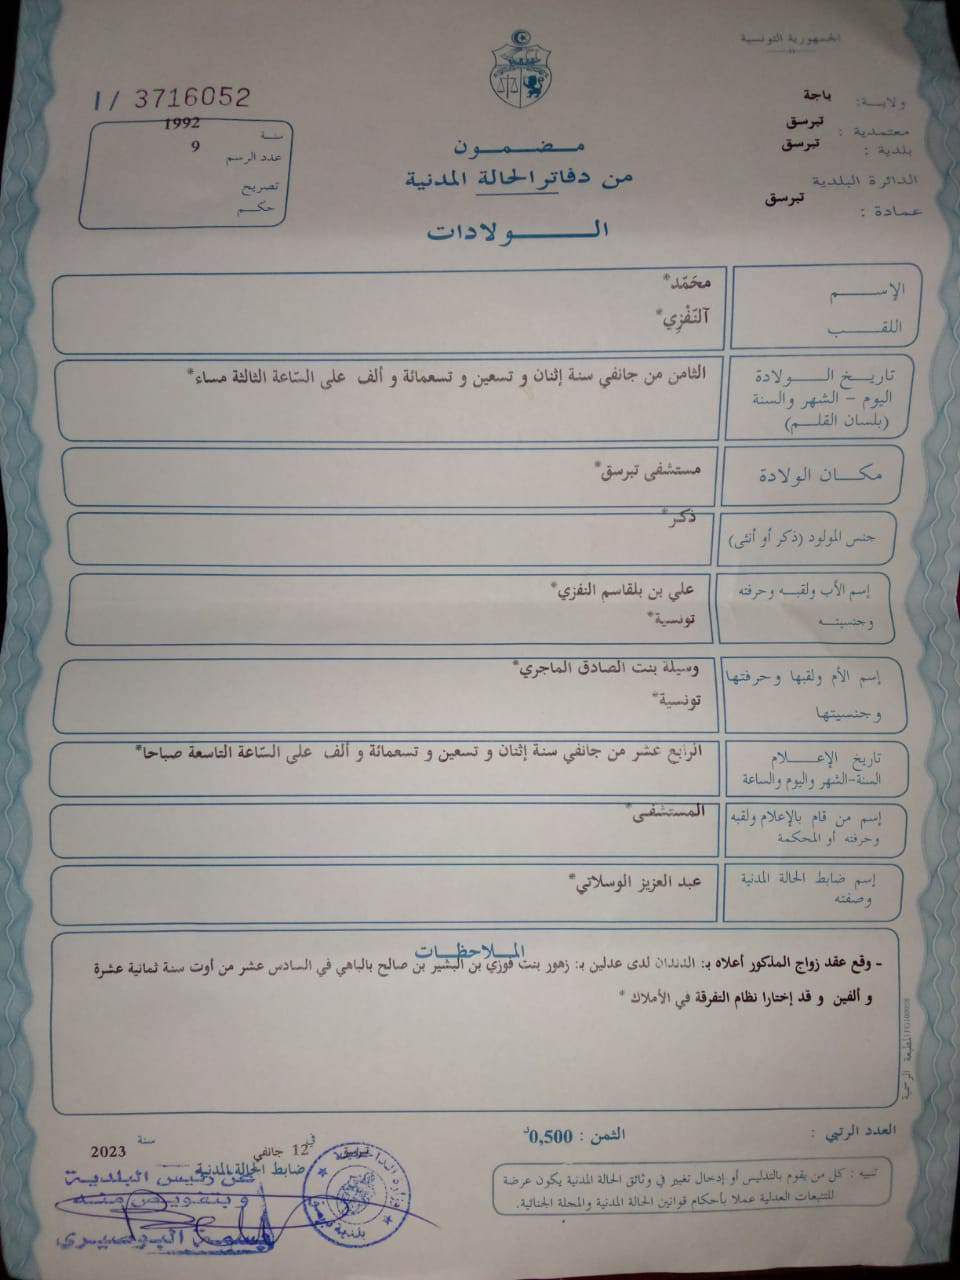 الجمهورية التونسية
ولاية: باجة
معتمدية : تبرسق
بلدية : تبرسق
الدائرة البلدية
عمادة : تبرسق
I / 3716052
سنة 1992
عدد الرسم 9
تصريح
حكم
مضمون
من دفاتر الحالة المدنية
الولادات
الإسم محَمّد*
اللقب آلنّفْزِي*
تاريخ الولادة
اليوم - الشهر والسنة
(بلسان القلم)
الثامن من جانفي سنة إثنان و تسعين و تسعمائة و ألف على السّاعة الثالثة مساء*
مكان الولادة مستشفى تبرسق*
جنس المولود (ذكر أو أنثى) ذكر*
إسم الأب ولقبه وحرفته علي بن بلقاسم النفزي*
وجنسيته تونسية*
إسم الأم ولقبها وحرفتها وسيلة بنت الصادق الماجري*
وجنسيتها تونسية*
تاريخ الإعلام
السنة-الشهر واليوم والساعة
الرابع عشر من جانفي سنة إثنان و تسعين و تسعمائة و ألف على السّاعة التاسعة صباحا*
إسم من قام بالإعلام ولقبه
وحرفته أو المحكمة
المستشفى*
إسم ضابط الحالة المدنية
وصفته
عبد العزيز الوسلاتي*
الملاحظات
- وقع عقد زواج المذكور أعلاه بـ: الدندان لدى عدلين بـ: زهور بنت فوزي بن البشير بن صالح بالباهي في السادس عشر من أوت سنة ثمانية عشرة
و ألفين و قد إختارا نظام التفرقة في الأملاك *
المطبعة الرسمية
العدد الرتبي :
الثمن : 0,500د
في 12 جانفي سنة 2023
ضابط الحالة المدنية
عن رئيس البلدية
وبتفويض منه
تنبيه : كل من يقوم بالتدليس أو إدخال تغيير في وثائق الحالة المدنية يكون عرضة
للتتبعات العدلية عملا بأحكام قوانين الحالة المدنية والمجلة الجنائية.